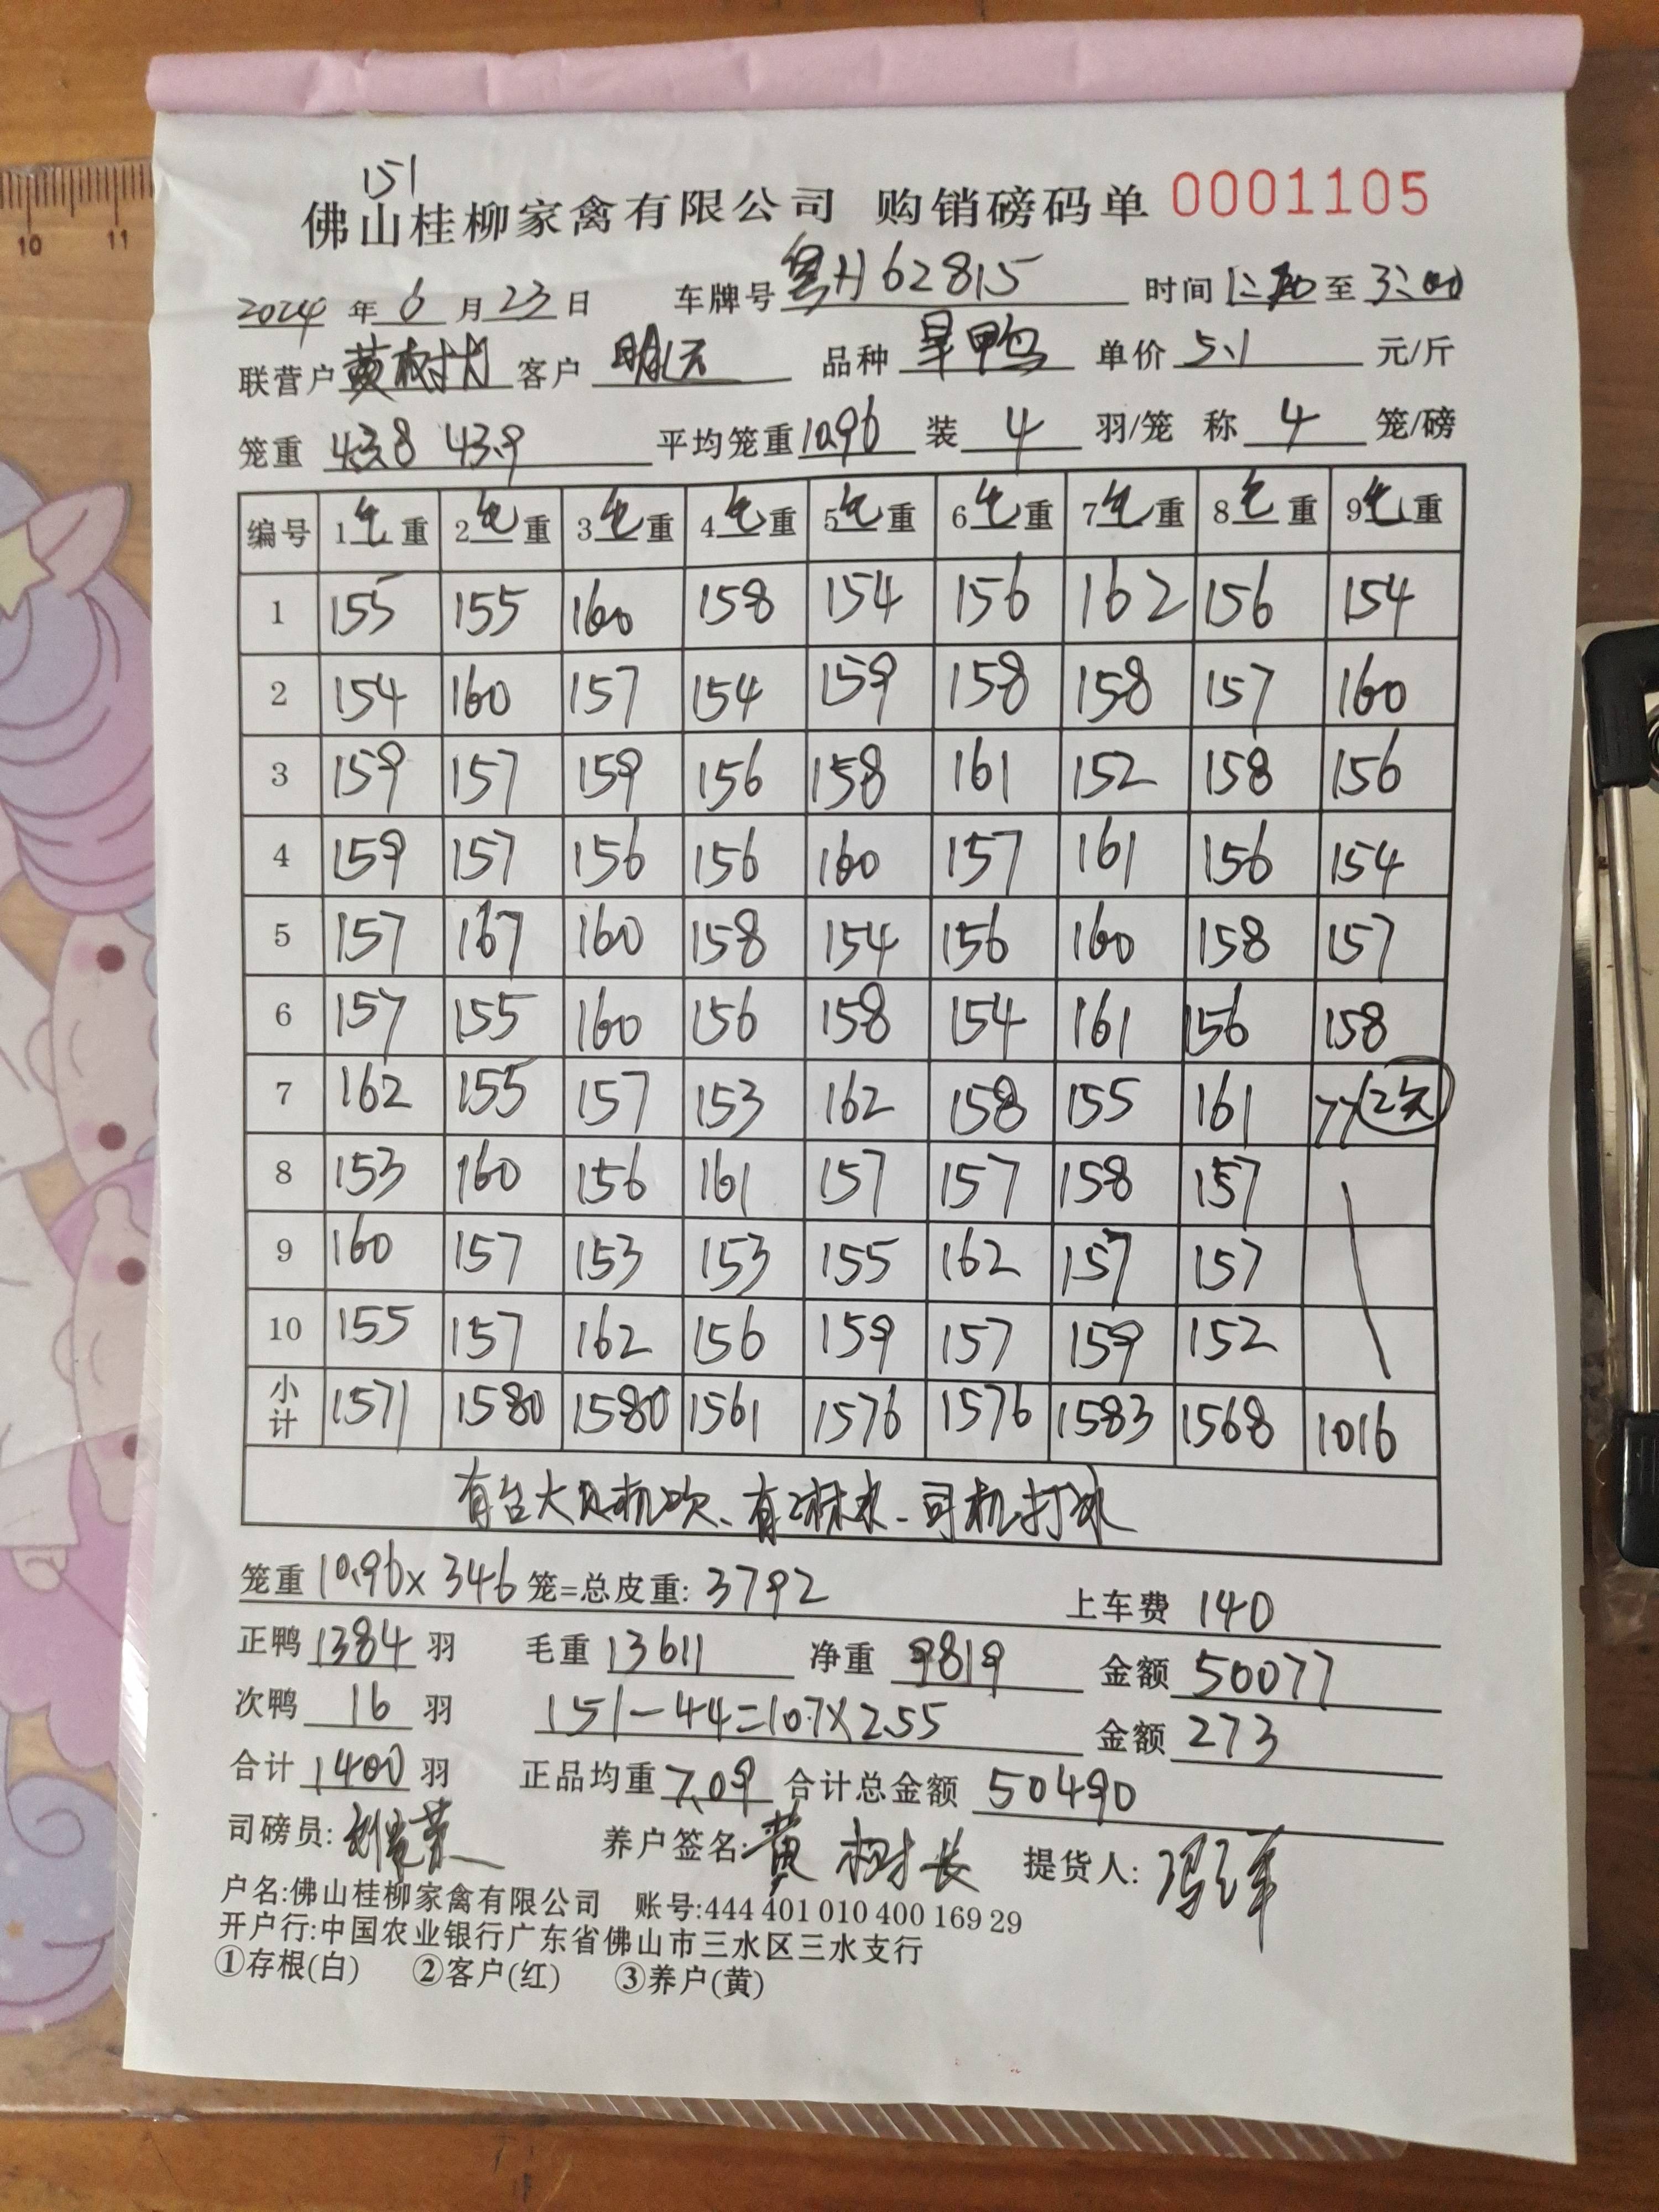 10 11
151
佛山桂柳家禽有限公司 购销磅码单 0001105
2024 年 6 月 23 日 车牌号 粤H62815 时间 至 3:00
联营户 黄树长 客户 品种 旱鸭 单价 5.1 元/斤
笼重 43.8 43.9 平均笼重 10.96 装 4 羽/笼 称 4 笼/磅
编号 1毛重 2毛重 3毛重 4毛重 5毛重 6毛重 7毛重 8毛重 9毛重
1 155 155 160 158 154 156 162 156 154
2 154 160 157 154 159 158 158 157 160
3 159 157 159 156 158 161 152 158 156
4 159 157 156 156 160 157 161 156 154
5 157 167 160 158 154 156 160 158 157
6 157 155 160 156 158 154 161 156 158
7 162 155 157 153 162 158 155 161 77(2笼)
8 153 160 156 161 157 157 158 157
9 160 157 153 153 155 162 157 157
10 155 157 162 156 159 157 159 152
小计 1571 1580 1580 1561 1576 1576 1583 1568 1016
有台大风机吹、有淋水、司机打冰
笼重 10.96× 346 笼=总皮重: 3792 上车费 140
正鸭 1384 羽 毛重 13611 净重 9819 金额 50077
次鸭 16 羽 151-44=107×2.55 金额 273
合计 1400 羽 正品均重 7.09 合计总金额 50490
司磅员: 养户签名: 黄树长 提货人:
户名:佛山桂柳家禽有限公司 账号:444 401 010 400 169 29
开户行:中国农业银行广东省佛山市三水区三水支行
①存根(白) ②客户(红) ③养户(黄)